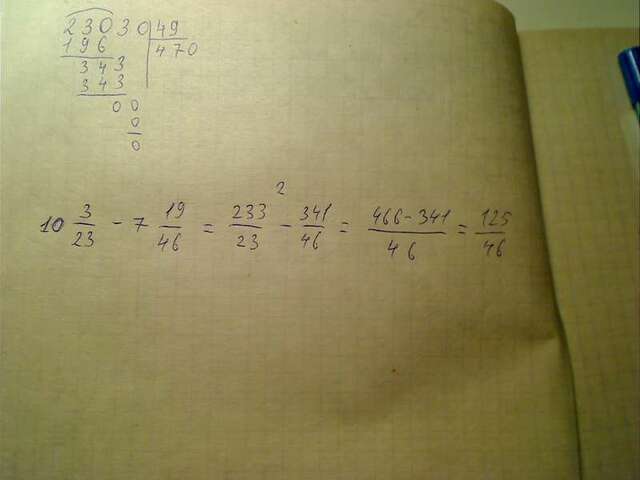 23030 49
196 470
343
343
00
0
0
2
10 3/23 - 7 19/46 = 233/23 - 341/46 = 466-341/46 = 125/46